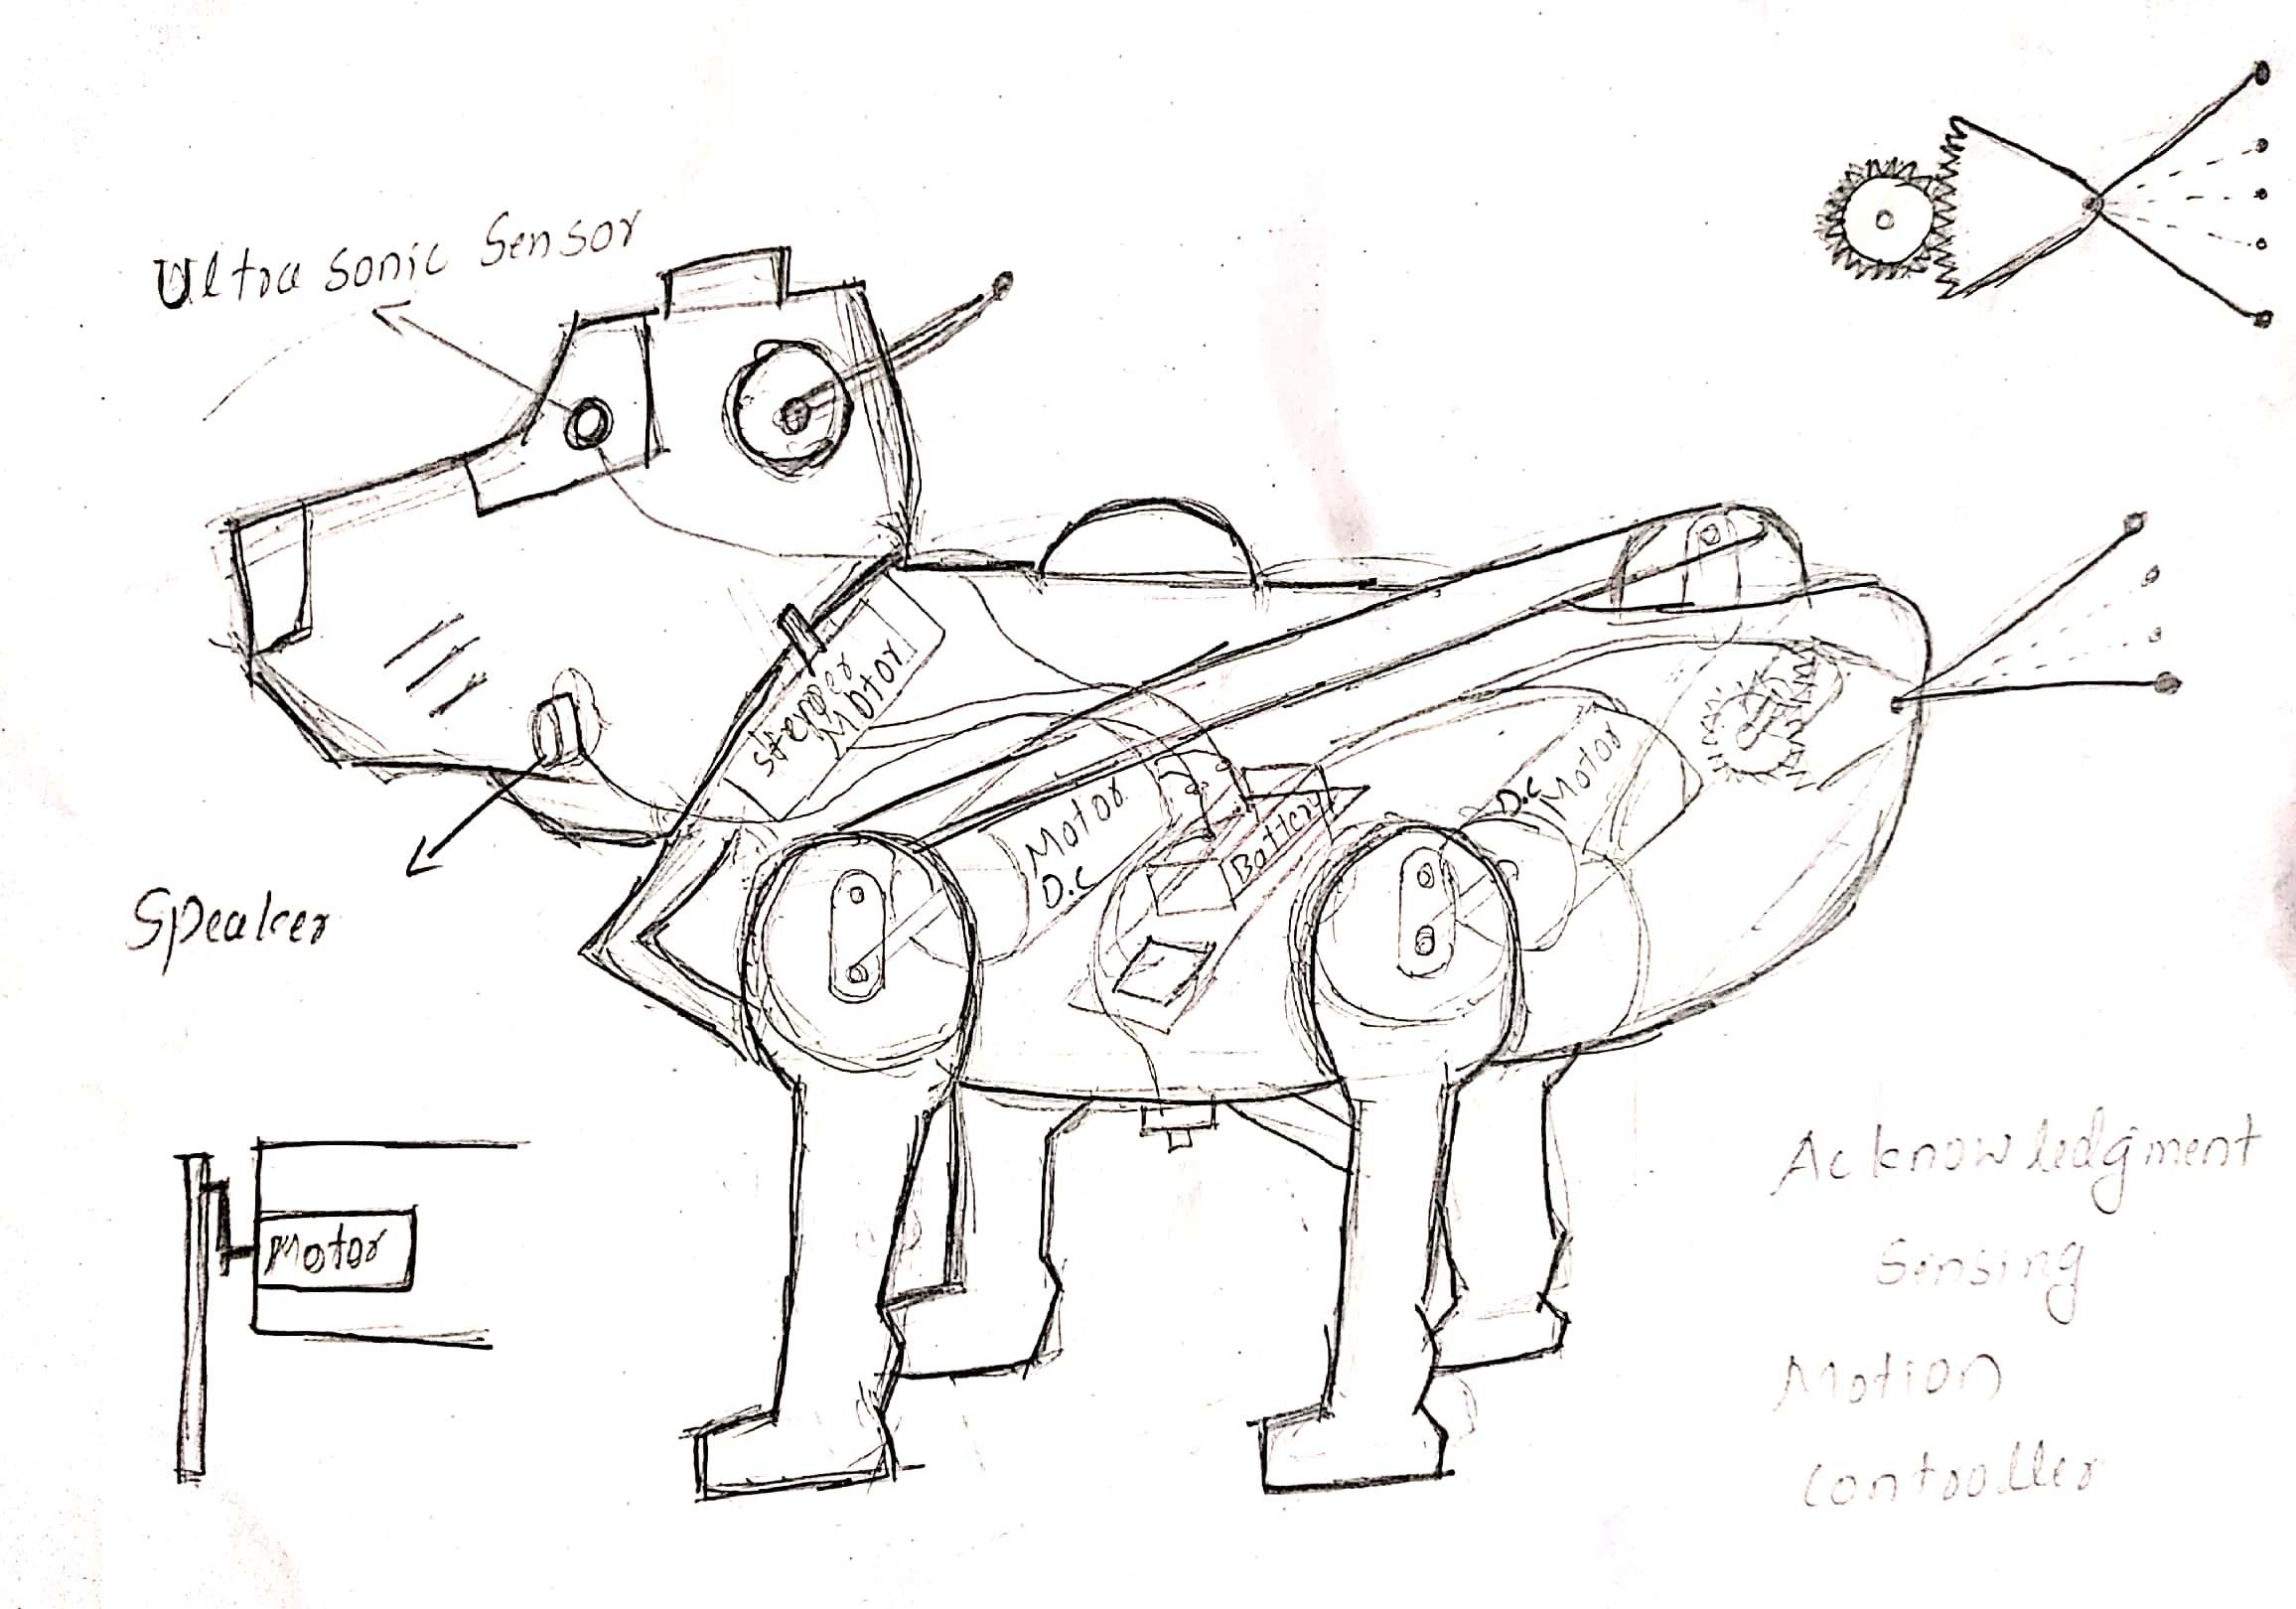 Ultra sonic Sensor
stepper
Motor
Motor
D.c
Battery
D.c
Motor
Speaker
Motor
Acknowledgment
Sensing
Motion
controller